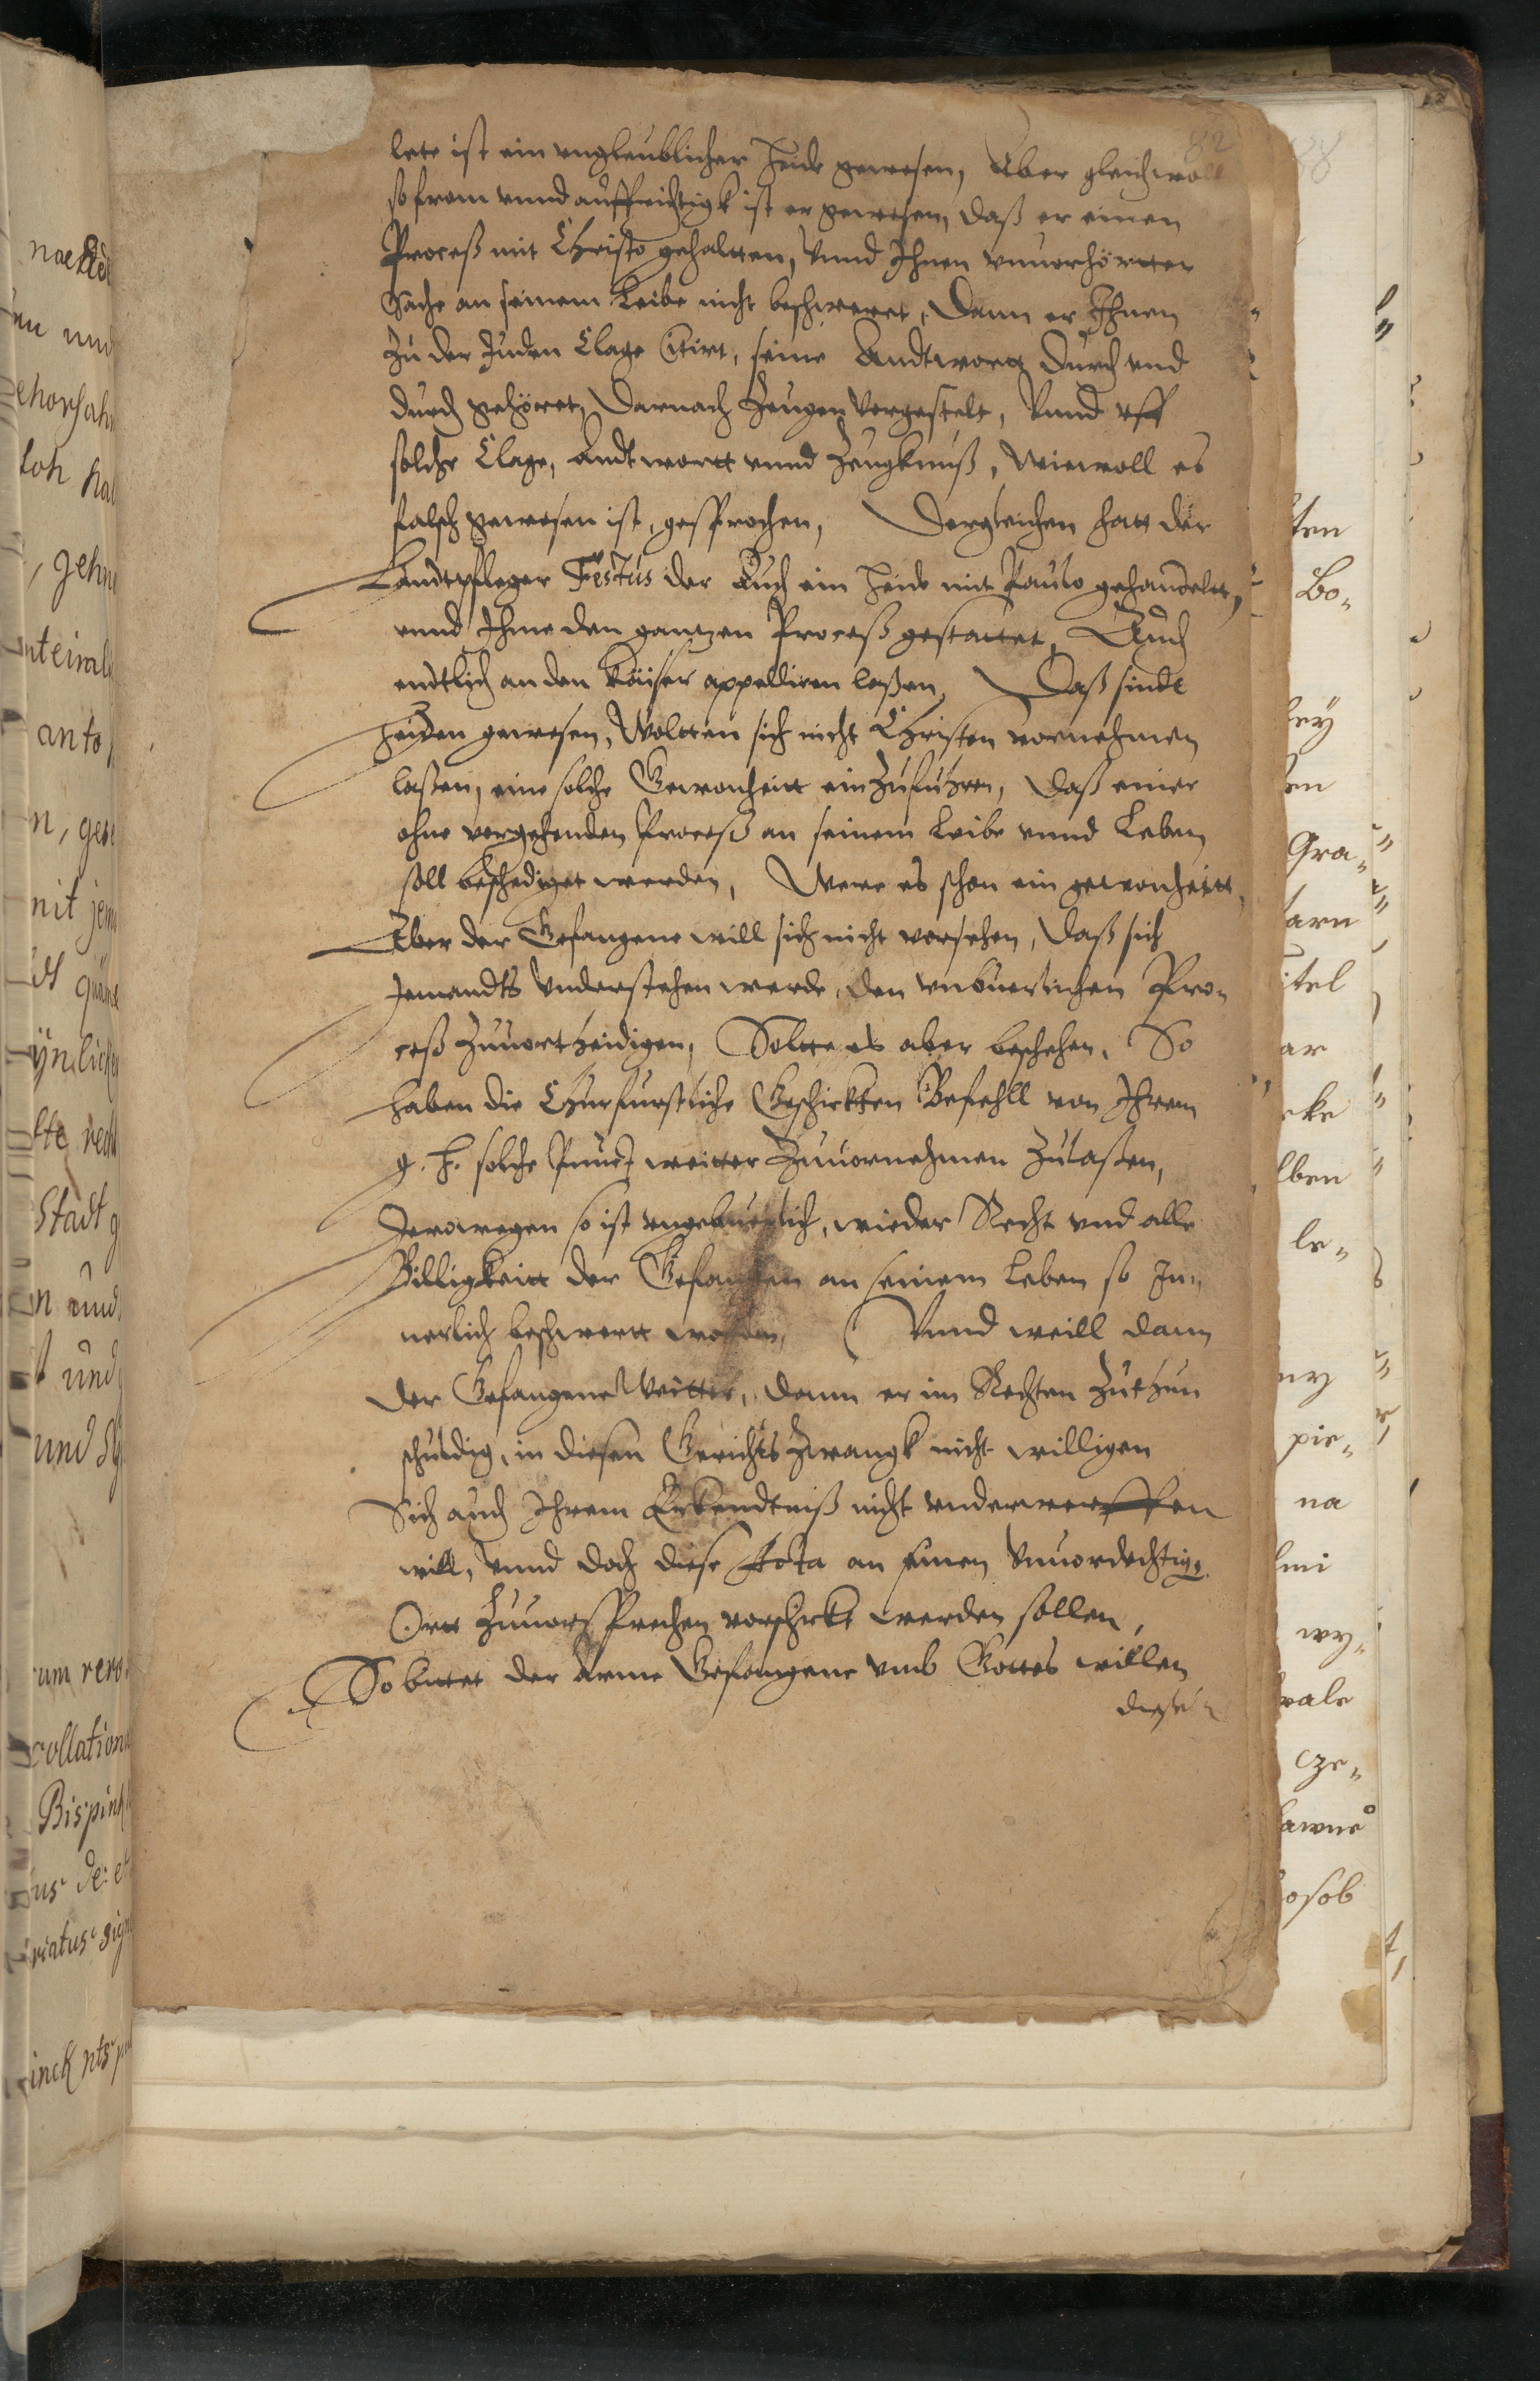 82
lete ist ein vnglaublicher Heide gewesen, Aber gleichwoll
so from vnnd auffrichtigk ist er gewesen, daß er einen
Proceß mit Christo gehaltten, Vnnd Ihnen vnuorhörtter
Sache an seinem Leibe nicht beschweret, Dann er Ihnen
Zu der Juden Clage Citirt, seine Andtwortt durch vnd
durch gehöret, Darnach Zeugen Vorgestelt, Vnnd vff
solche Clage, Andtwortt vnnd Zeugknuß, Wiewoll es
falsch gewesen ist, gesprochen, Dergleichen hatt der
Landtpfleger Festus der Auch ein Heide mit Paulo gehandelt,
vnnd Ihme den gantzen Proceß gestattet, Auch
endtlich an den Käiser appelliren laßen, Daß sindt
Heiden gewesen, Woltten sich nicht Christen vornehmen
laßen, eine solche Gewonheitt einZufuhren, Daß einer
ohne vorgehenden Proceß an seinem Leibe vnnd Leben
soll beschediget werden, Were es schon ein gewonheitt,
Aber der Gefangene will sich nicht vorsehen, daß sich
Jemandts Vnderstehen werde, den vnbuerlichen Pro-
ceß Zuuortheidigen, Soltte es aber beschehen, So
haben die Churfurstliche Geschickten Befehll von Ihrem
g. h. solche weitter Zuuornehmen Zulaßen,
Derowegen so ist vngebuerlich, wieder Recht vnd alle
Billigkeitt der Gefangen an seinem Leben so In-
nerlich beschwertt worden, Vnnd weill dann
der Gefangene Weitter, dann er im Rechten Zuthun
schuldig, in diesen Gerichts Zwangk nicht willigen
Sich auch Ihrem Erkendtniß nicht vnderwerffen
will, Vnnd doch diese Acta an Einen Vnuordechtig.
Ortt Zuuorsprechen vorschickt werden sollen,
So bittet der Arme Gefangene vmb Gottes willen
diese